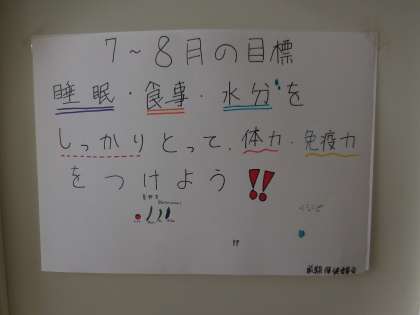 7～8月の目標
睡眠・食事・水分を
しっかりとって、体力・免疫力
をつけよう!!